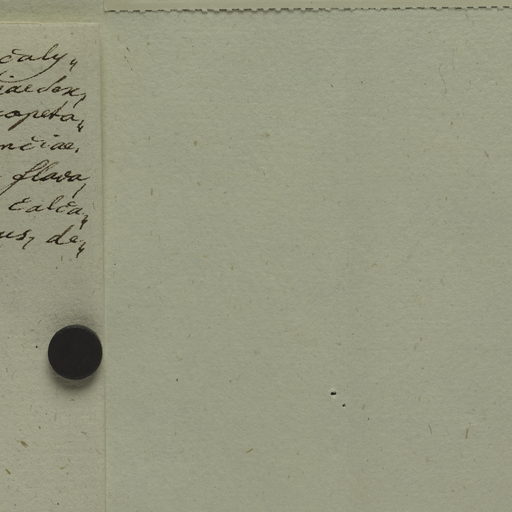 čaly„
iaedox„
copeta„
nčiae.
flava
čalča„
us, de„